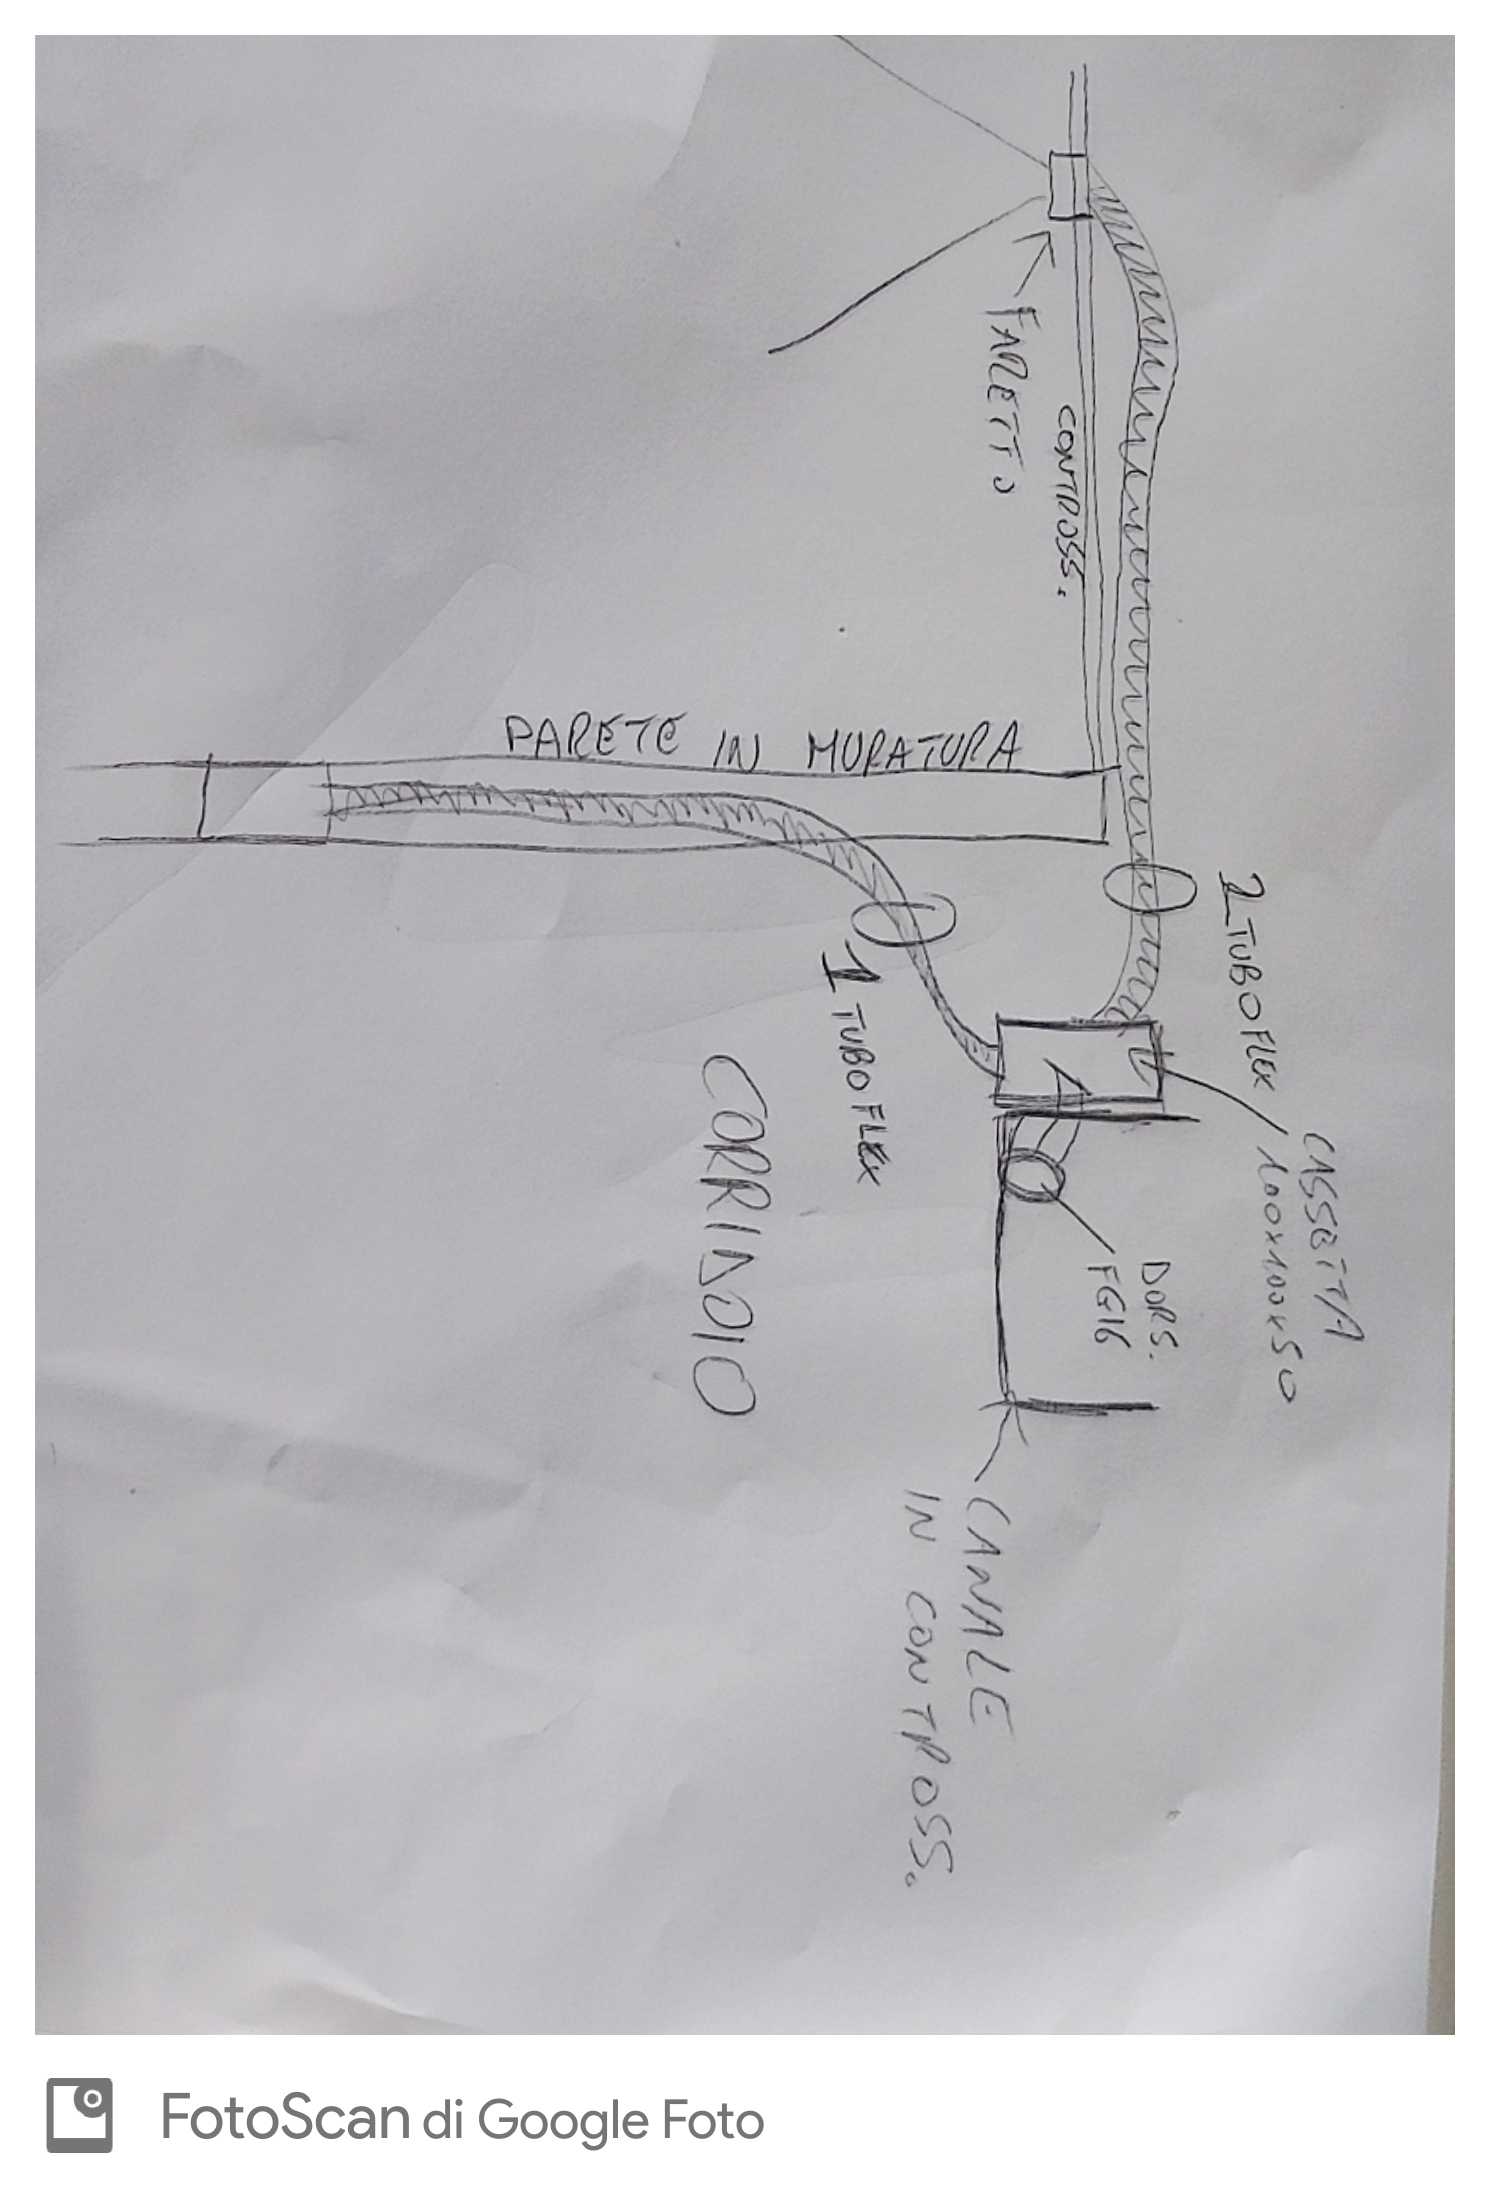 FARETTO
CONTROSS.
PARETE IN MURATURA
1 TUBOFLEX
1 TUBOFLEX
CASSETTA
100x100x50
DORS.
FG16
CORRIDOIO
CANALE
IN CONTROSS.
FotoScan di Google Foto